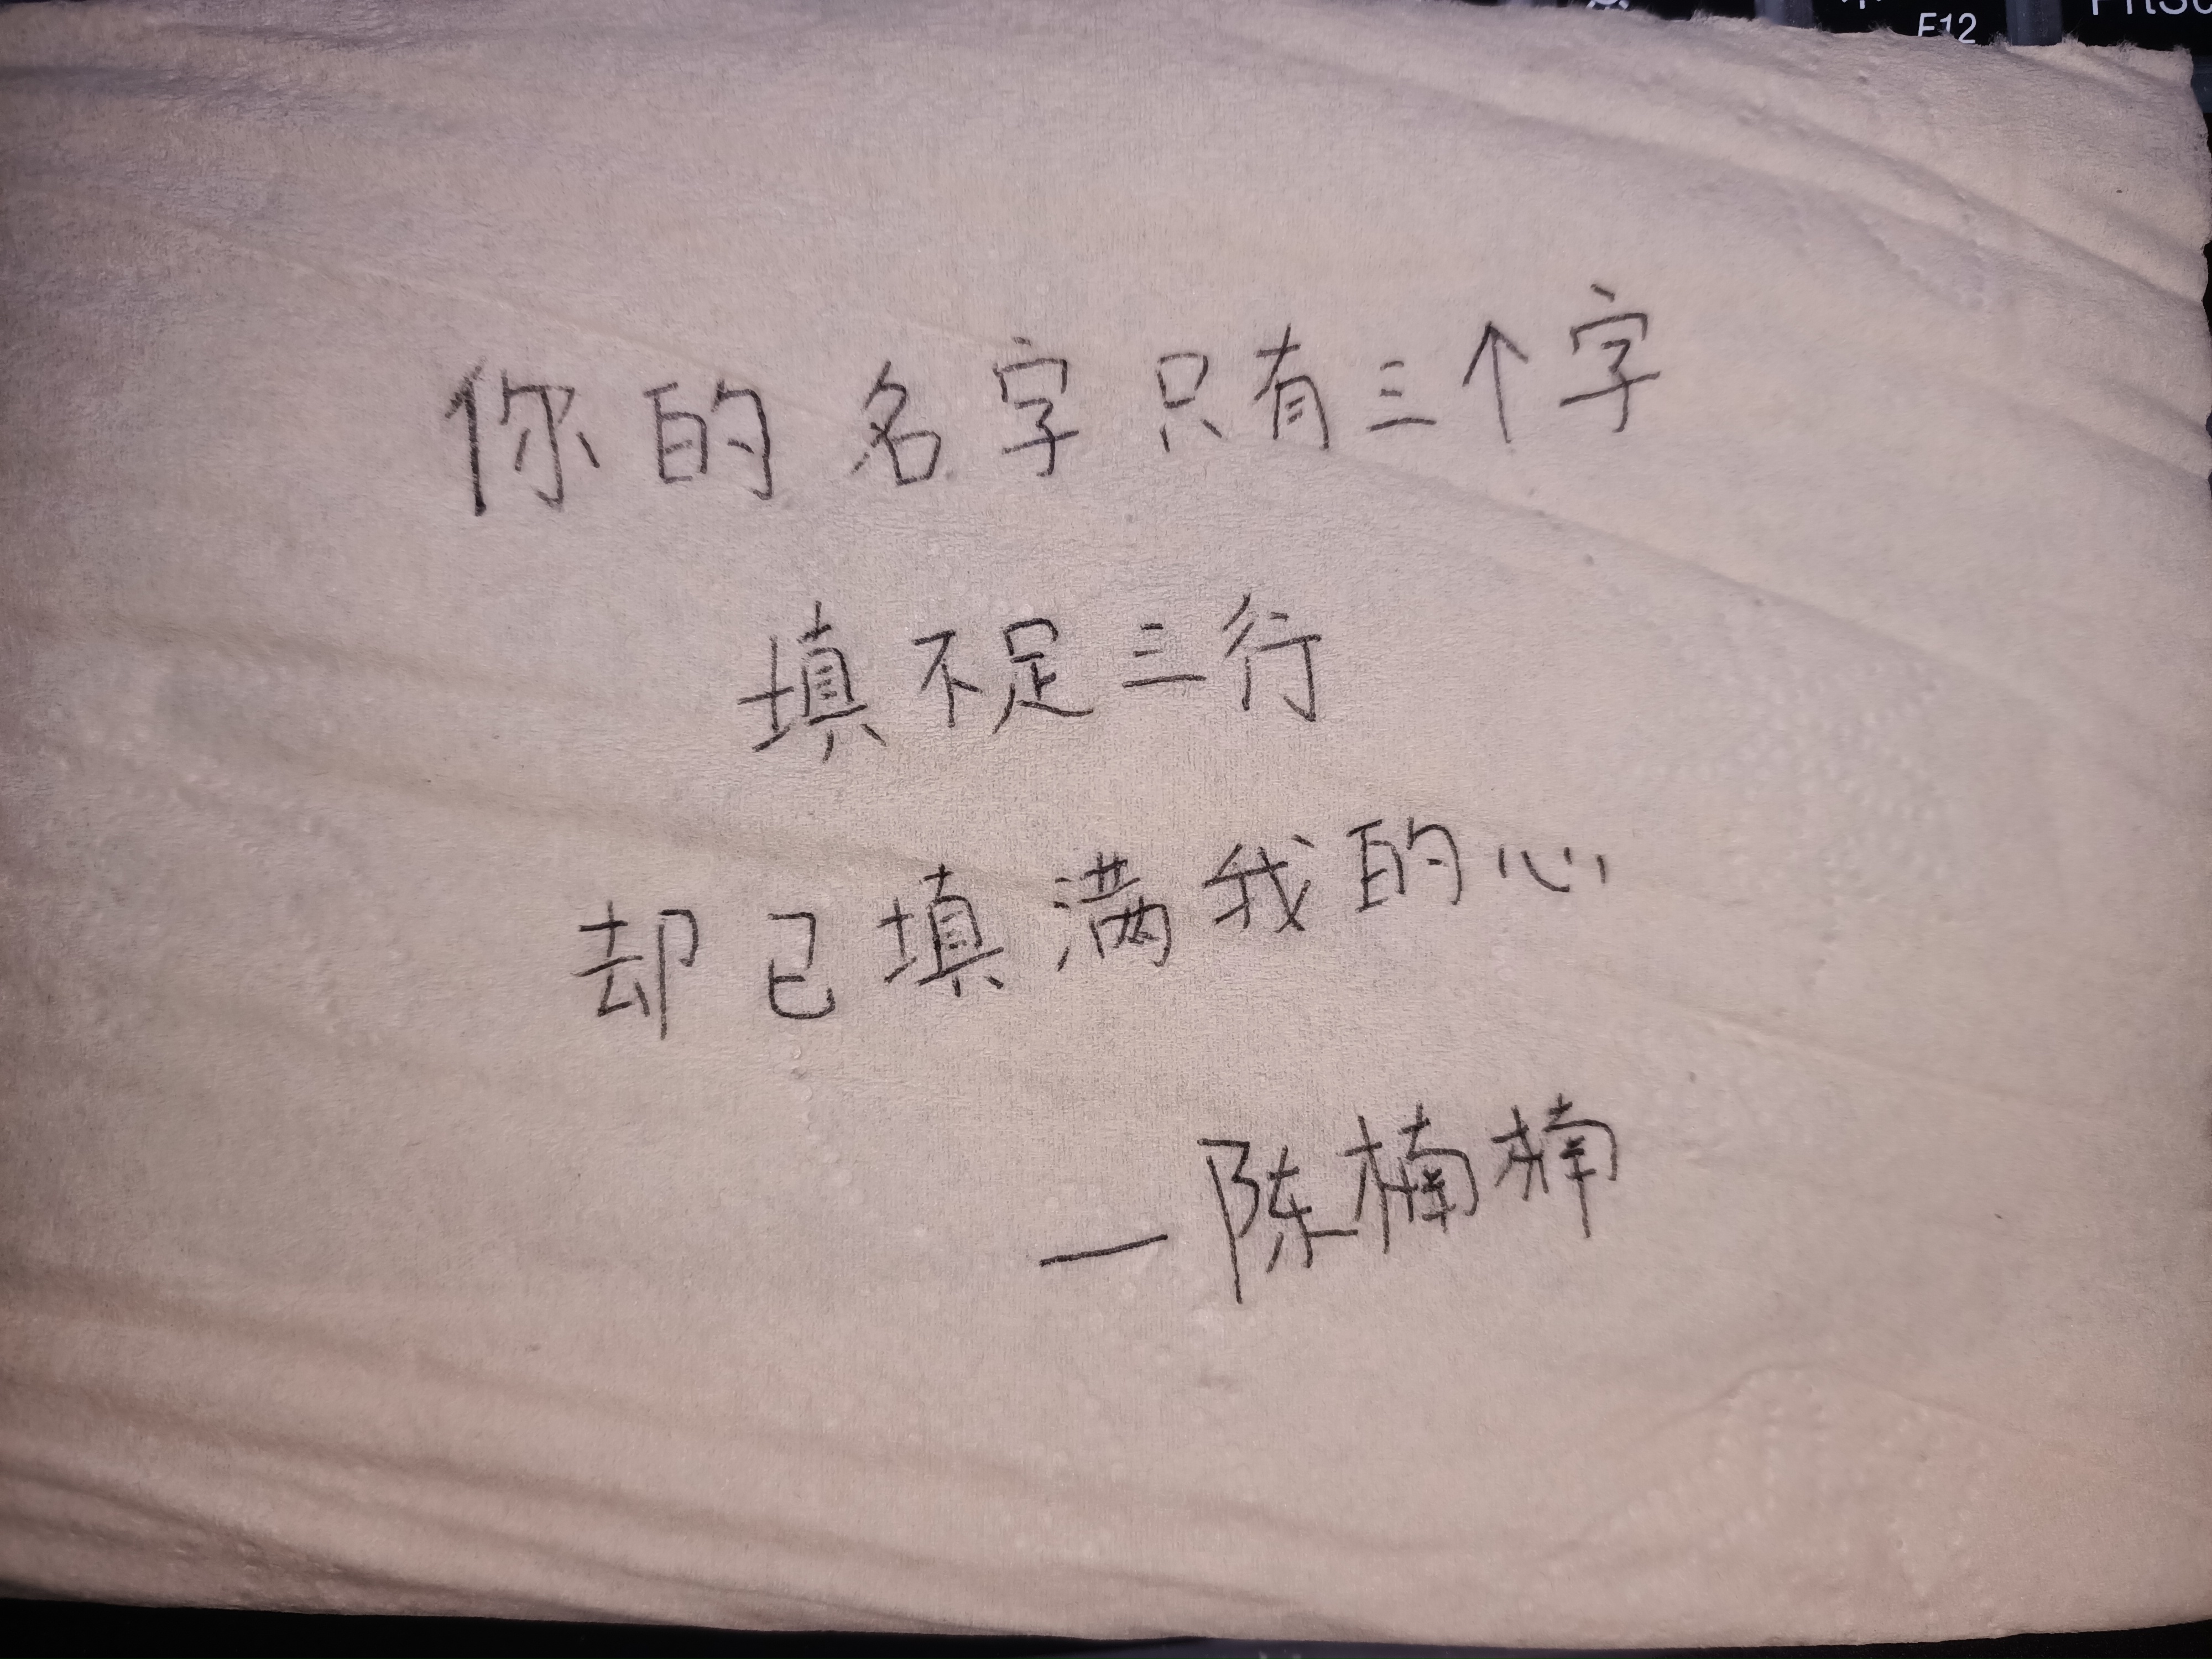 F12
PrtSc
你的名字只有三个字
填不足三行
却已填满我的心
—陈楠楠